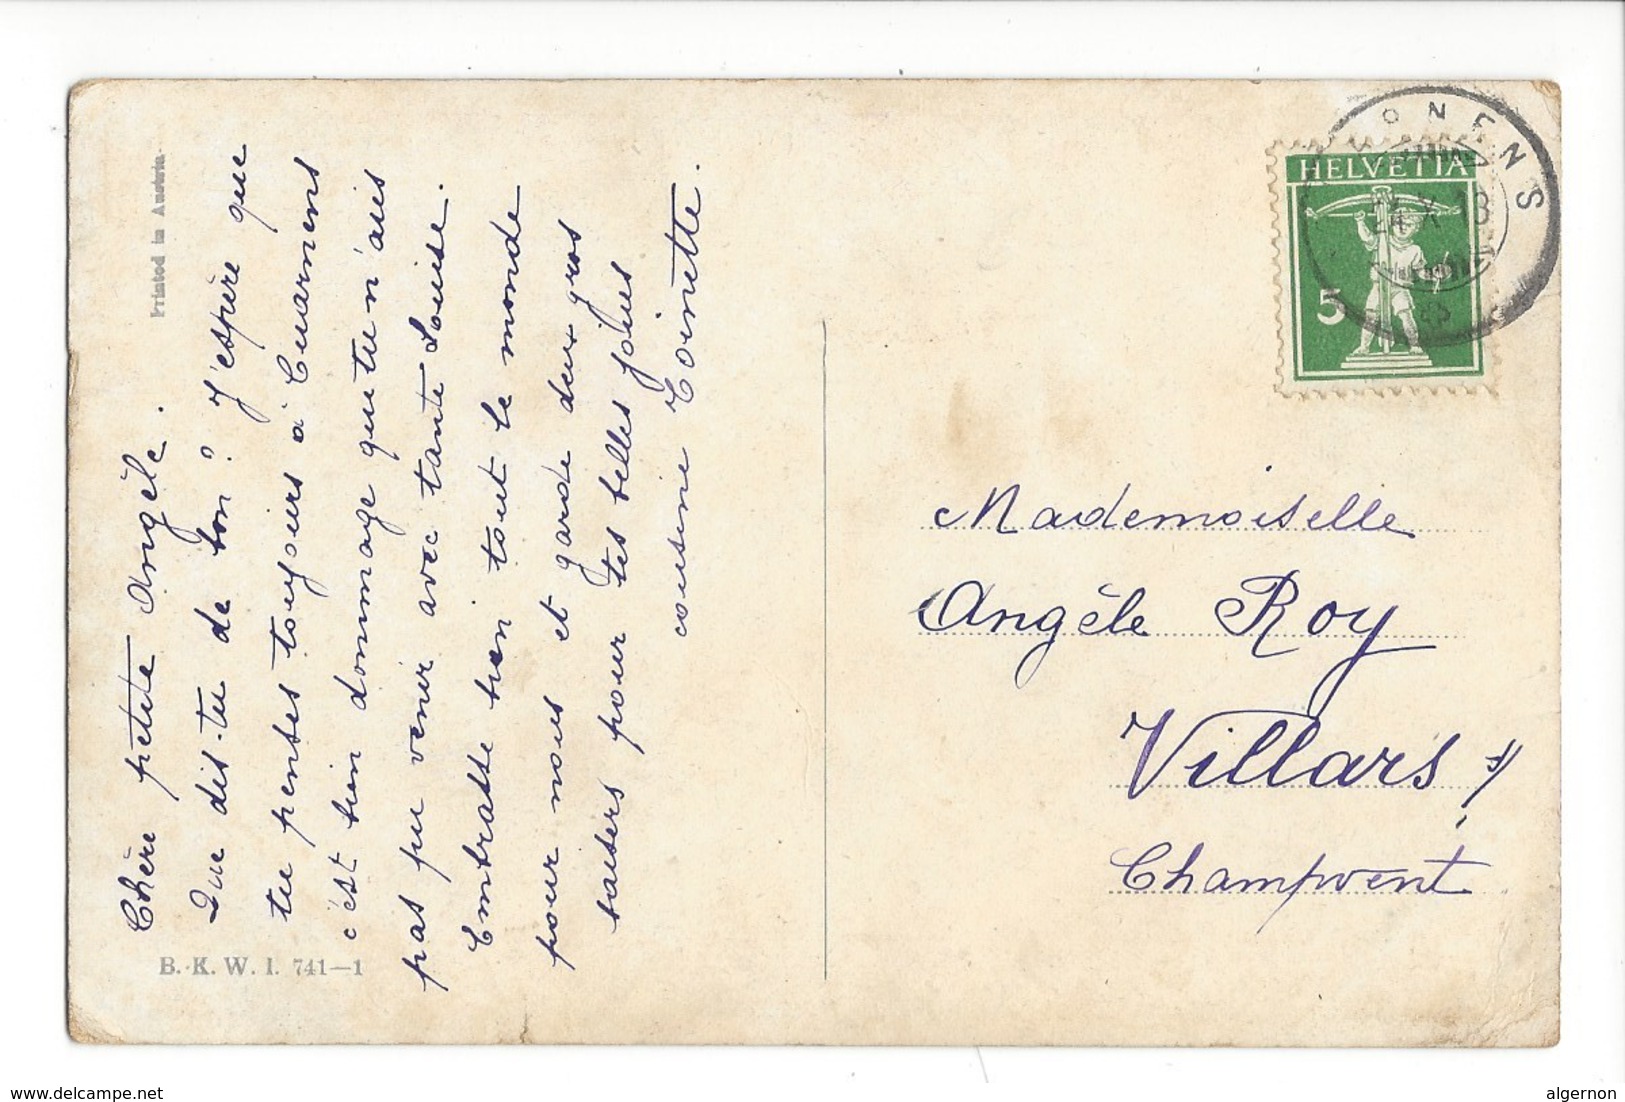 Chère petite Angèle.
Que dis-tu de bon? J'espère que
tu penses toujours à Cuarnens
c'est bien dommage que tu n'aies
pas pu venir avec tante Louise.
Embrasse bien tout le monde
pour nous et garde deux gros
baisers pour tes belles joues
cousine Toinette.
Printed in Austria
B. K. W. I. 741—1
HELVETIA
5
ONENS
X 13
Mademoiselle
Angèle Roy
Villars s/
Champvent
www.delcampe.net
algernon